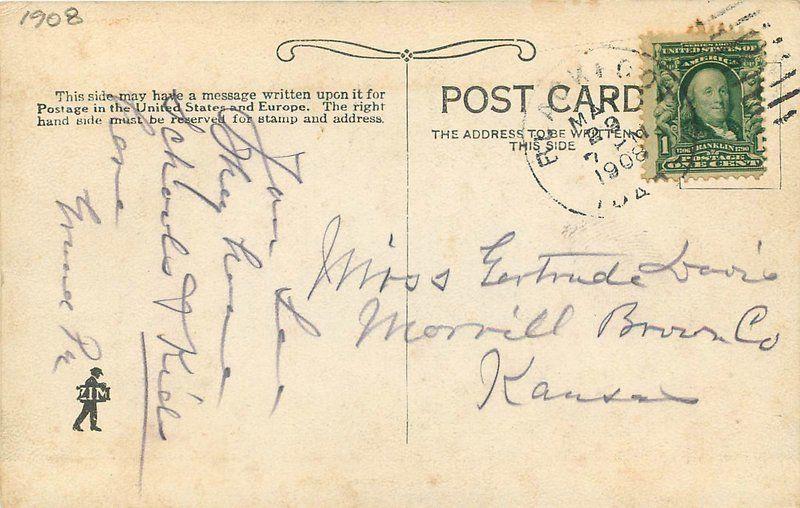 1908
This side may have a message written upon it for
Postage in the United States and Europe. The right
hand side must be reserved for stamp and address.
POST CARD
THE ADDRESS TO BE WRITTEN ON
THIS SIDE
MAY
29
1908
SERIES 1902
UNITED STATES OF
AMERICA
1
1706 FRANKLIN 1790
POSTAGE
ONE CENT
They have
Schools & Kids
Love
Miss Gertrude Davis
Morrill Brown Co
Kansas
ZIM